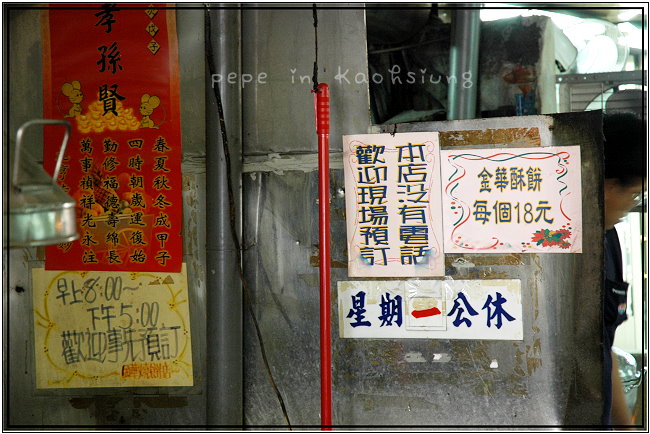 pepe in Kaohsiung
孝孫賢
春夏秋冬成甲子
四時朝歲運復始
勤修福德壽綿長
萬事禎祥光永注
早上8:00~
下午5:00
歡迎事先預訂
本店沒有電話
歡迎現場預訂
金華酥餅
每個18元
星期一公休